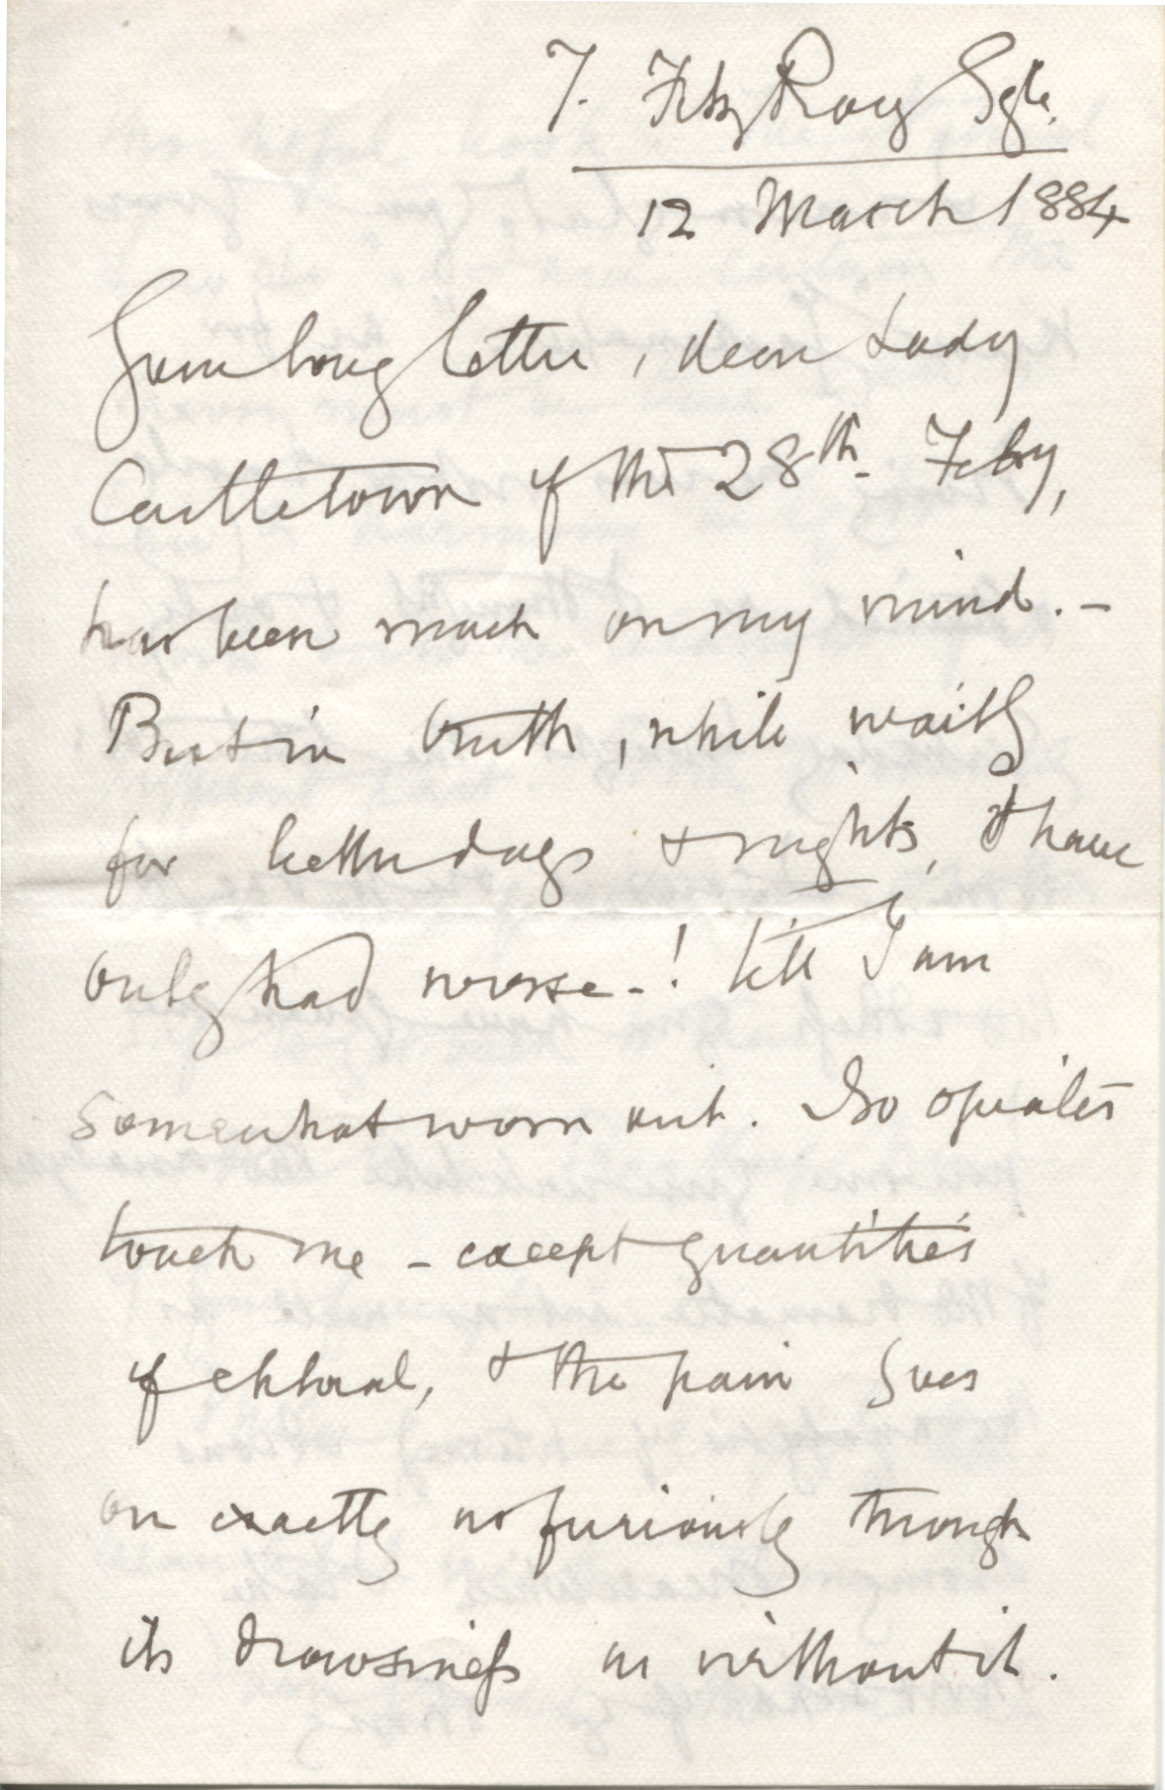 7. FitzRoy Sqre.
12 March 1884
Your long letter, dear Lady
Castletown of the 28th. Feby,
has been much on my mind. –
But in truth, while waitg
for better days & nights, I have
only had worse –! till I am
somewhat worn out. No opiates
touch me – except quantities
of chloral, & the pain goes
on exactly as furiously through
its drowsiness as without it.